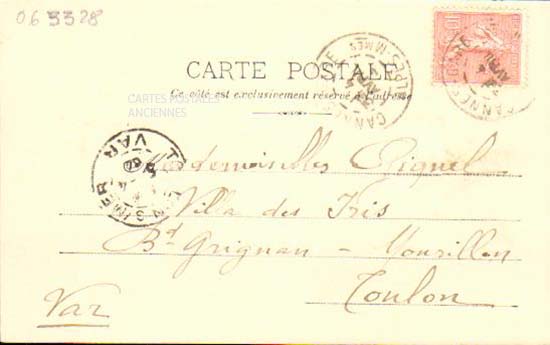 063328
CARTE POSTALE
Ce côté est exclusivement réservé à l'adresse
CARTES POSTALES
ANCIENNES
CANNES
VAR
Mesdemoiselles Giquel
Villa des Iris
Bd Grignan - Mourillon
Toulon
Var